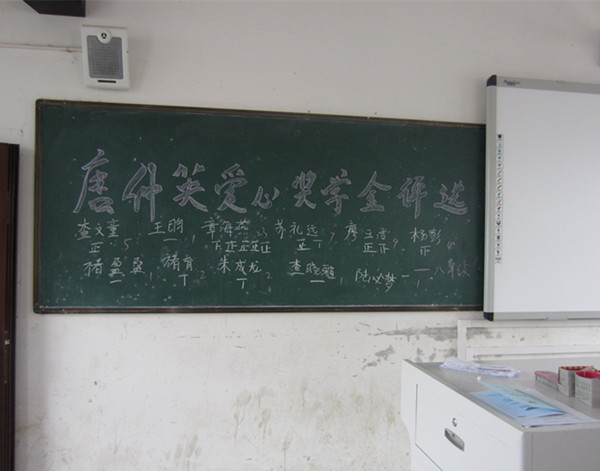 唐仲英爱心奖学金评选
查文童 王明 章海燕 苏礼远 廖立雪 杨彭
正 5 一 1 下正正正正 23 正丁 7 正下 9
褚盈盈 褚育 朱成龙 查晓 陆必梦 一八年级
一 1 丁 2 丁 2 一 1 一 1